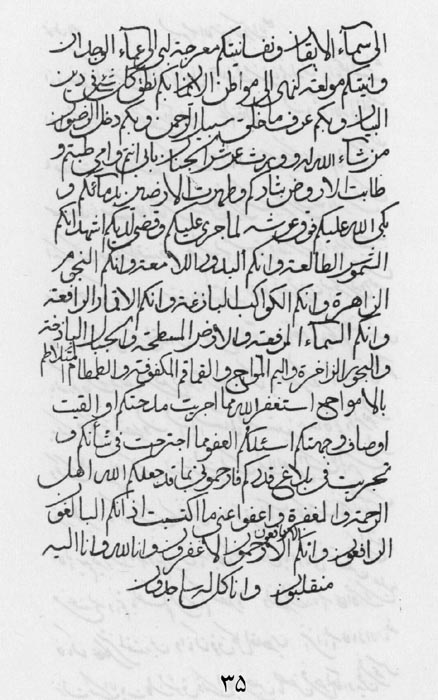 الى سماء الايقان ونفسانيتكم معرجة لى الى عماء الوجدان
وانيتكم مولعة كنهى الى مواطن الانما بكم نطق كل شىء فى دين
البيان وبكم عرف ما خلق سبيل الرحمن وبكم دخل الرضوان
من شاء الله له وورث عرش الجنان بابى انتم وامى طبتم و
طابت الارض فى ثاركم وطهرت الارضين بدمائكم و
بكى الله عليكم فوق عرشه لما جرى عليكم وقضى لديكم اشهد انكم
الشموس الطالعة وانكم البدور اللامعة وانكم النجوم
الزاهرة وانكم الكواكب البازغة وانكم الاقمار الرافعة
وانكم السماء المرفعة والارض المسطحة والجبال الباذخة
والبحور الزاخرة واليم المواج والقمقام المكفوفة والطمطام المتلاطم
بالامواج استغفر الله مما اجريت مدحتكم والقيت
اوصاف وجهتكم اسئلكم العفو مما اجترحت فى شأنكم و
تجريت فى بلاغ قدركم فارحمونى بما قد جعلكم الله اهل
الرحمة والمغفرة واعفوا عنى ما اكتسبت اذ انكم البالغون
الرافعون وانكم الارحمون الاغفرون وانا لله وانا اليه
منقلبون وانا كل له ساجدون
٣٥